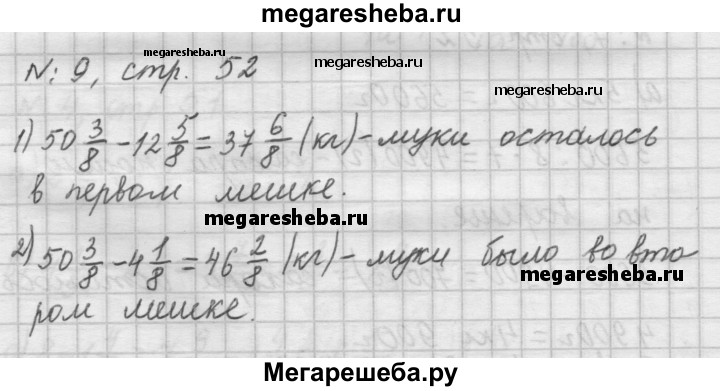 megaresheba.ru
№ 9, стр. 52
megaresheba.ru
megaresheba.ru
1) 50 3/8 - 12 5/8 = 37 6/8 (кг) - муки осталось
в первом мешке.
megaresheba.ru
2) 50 3/8 - 4 1/8 = 46 2/8 (кг) - муки было во вто
megaresheba.ru
ром мешке.
Мегарешеба.ру